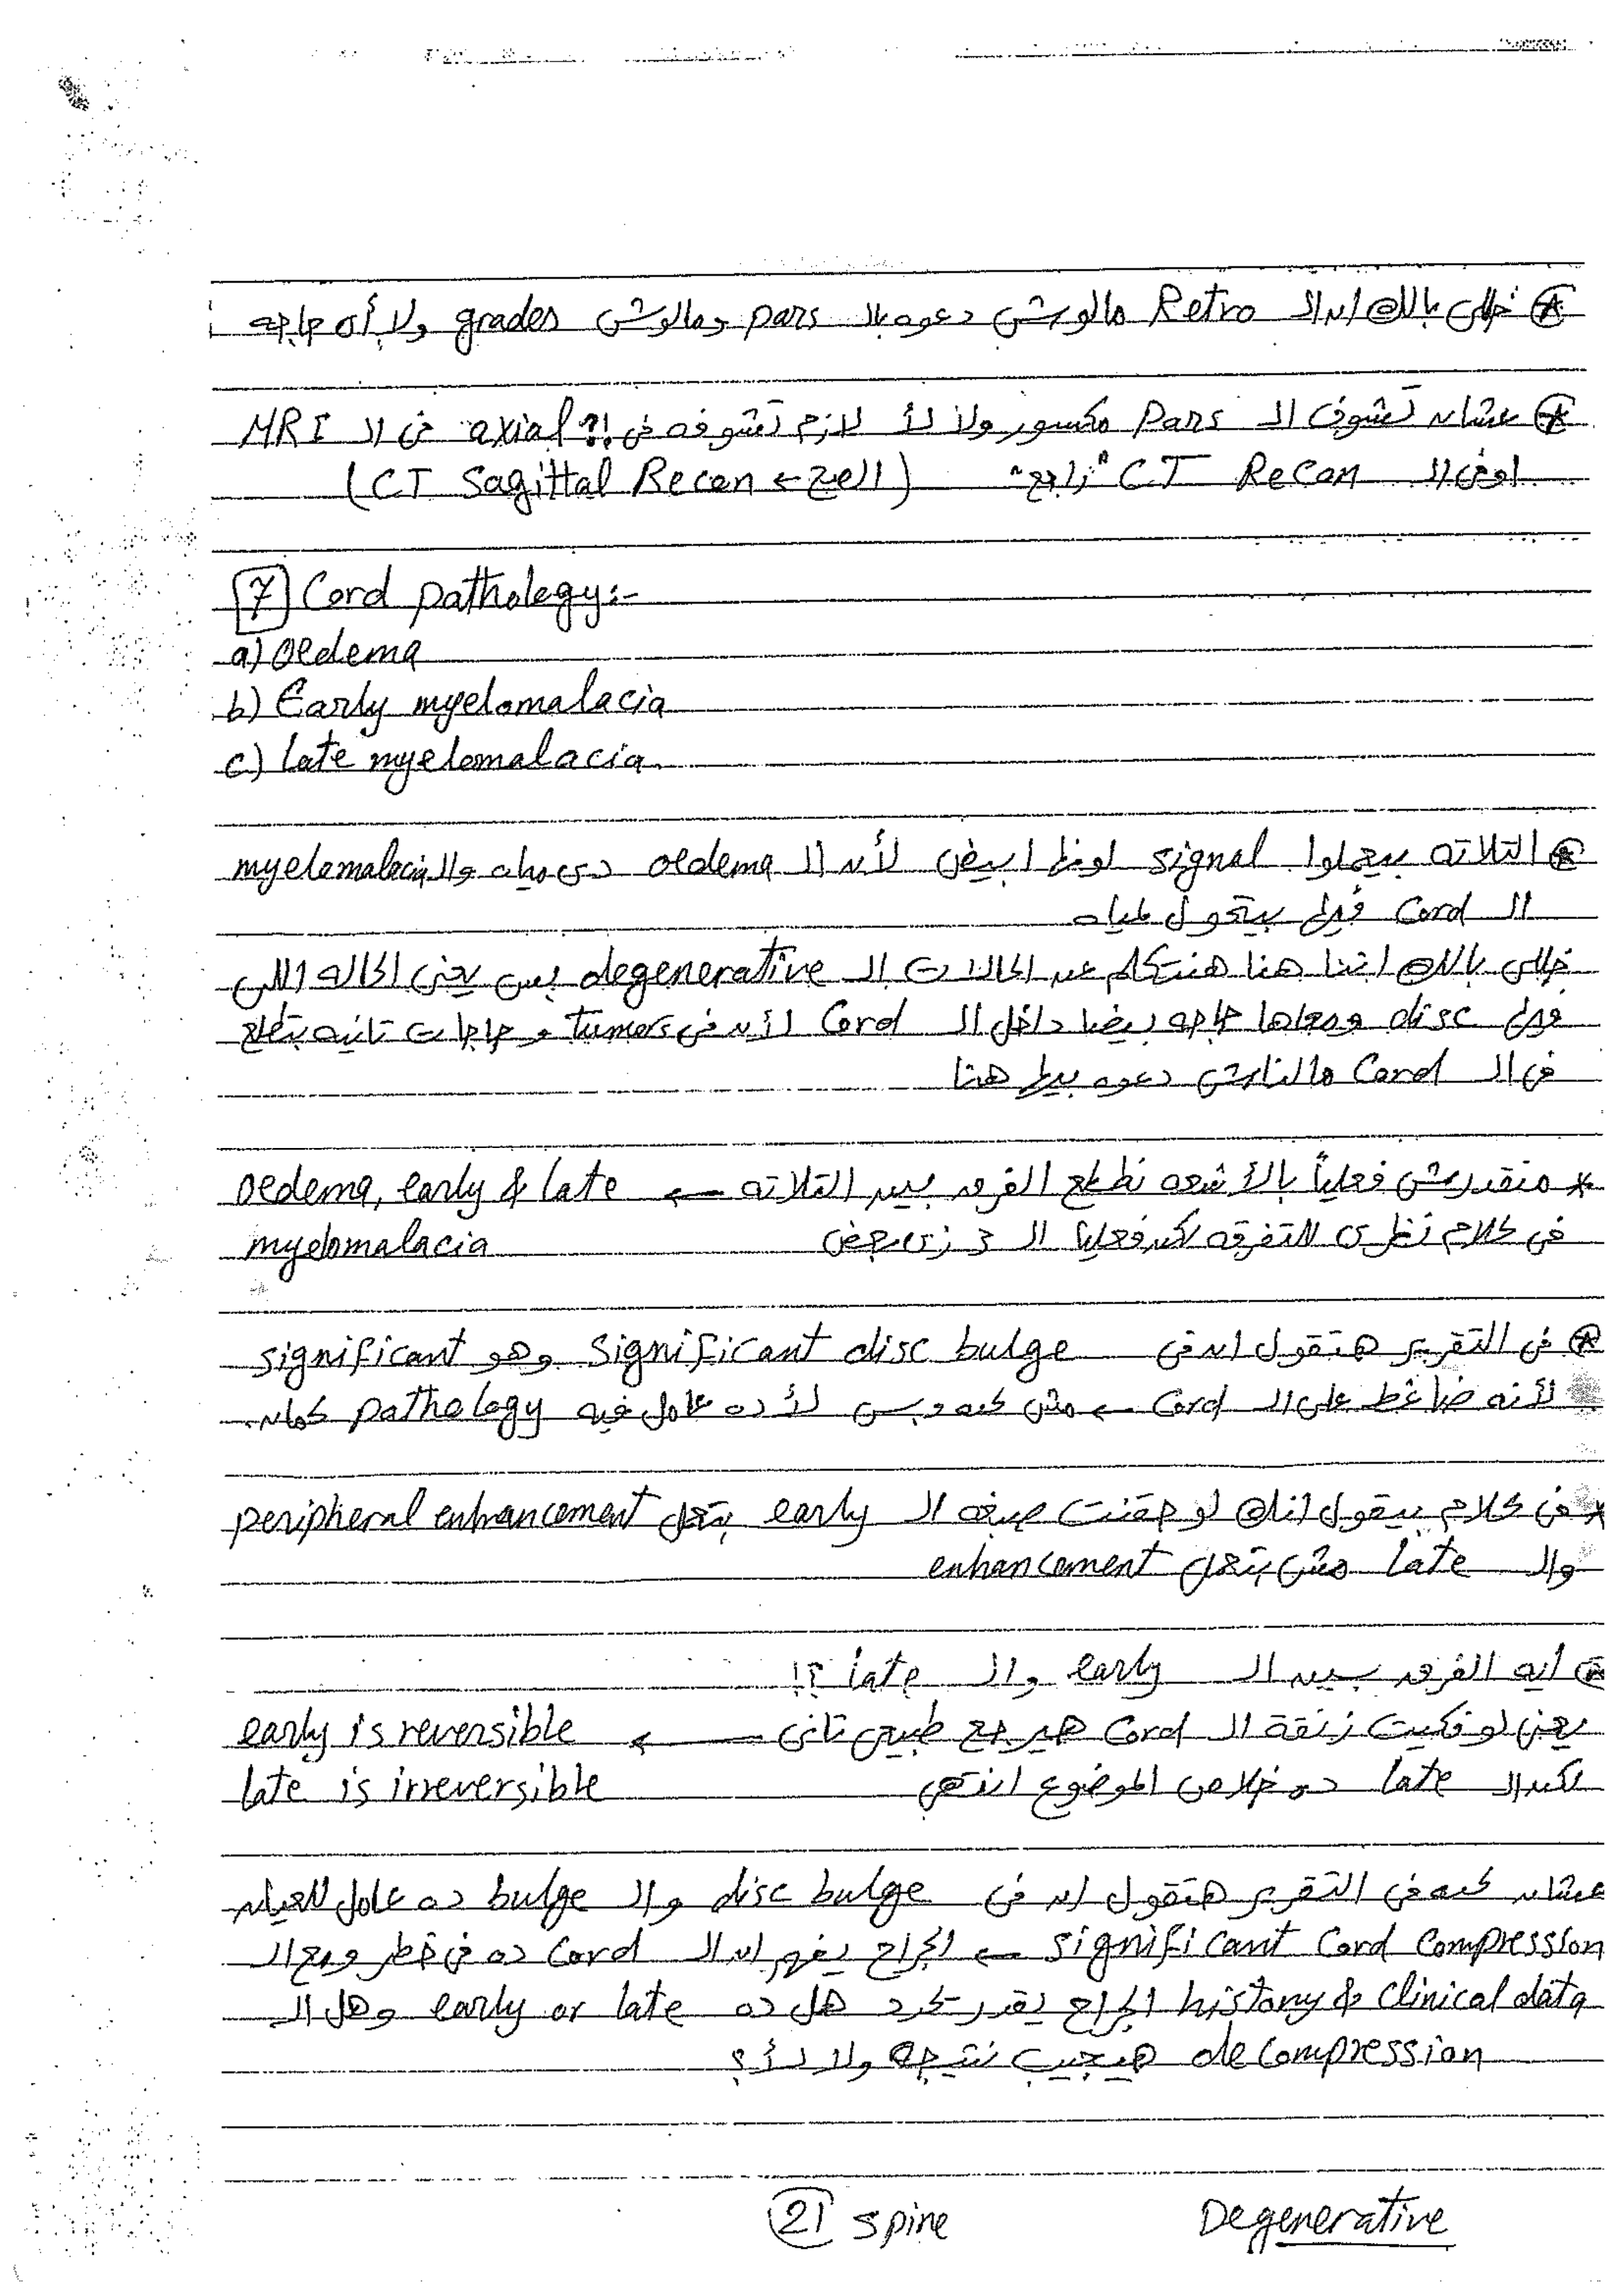 خللى بالك ان ال Retro مالوش دعوه بال pars ومالوش grades ولا أى حاجه
عشان تشوف ال Pars مكسور ولا لأ لازم تشوفه فى axial ؟! فى ال MRI
او فى ال CT Recon "راجع" (الصح ← CT Sagittal Recon)
7 Cord pathology:-
a) oedema
b) Early myelomalacia
c) late myelomalacia
التلاته بيعملوا signal لونها ابيض لأن ال oedema دى مياه وال myelomalacia
ال Cord فيها بيتحول لمياه
خللى بالك احنا هنا هنتكلم عن الحالات ال degenerative بس يعنى الحاله اللى
فيها disc ومعاها حاجه بيضا داخل ال Cord لأن فى tumors و حاجات تانيه بتطلع
فى ال Cord مالناش دعوه بيها هنا
* منقدرش فعلياً بالأشعه نطلع الفرق بين التلاته ← oedema, early & late
myelomalacia
فى كلام نظرى للتفرقه لكن فعلياً ال 3 زى بعض
فى التقرير هتقول ان فى Significant disc bulge وهو significant
لأنه ضاغط على ال Cord ← مش كده وبس لأ ده عامل فيه pathology كمان.
* فى كلام بيقول انك لو حقنت صبغه ال early بتعمل peripheral enhancement
وال late مش بتعمل enhancement
ايه الفرق بين ال early وال late ؟!
يعنى لو فكيت زنقة ال Cord هيرجع طبيعى تانى ← early is reversible
لكن ال late ده خلاص الموضوع انتهى late is irreversible
عشان كده فى التقرير هتقول ان فى disc bulge وال bulge ده عامل للعيان
significant Cord Compression ← الجراح يفهم ان ال Cord ده فى خطر ومع ال
history & clinical data الجراح يقدر يحدد هل ده early or late وهل ال
decompression هيجيب نتيجه ولا لأ؟
21 spine Degenerative